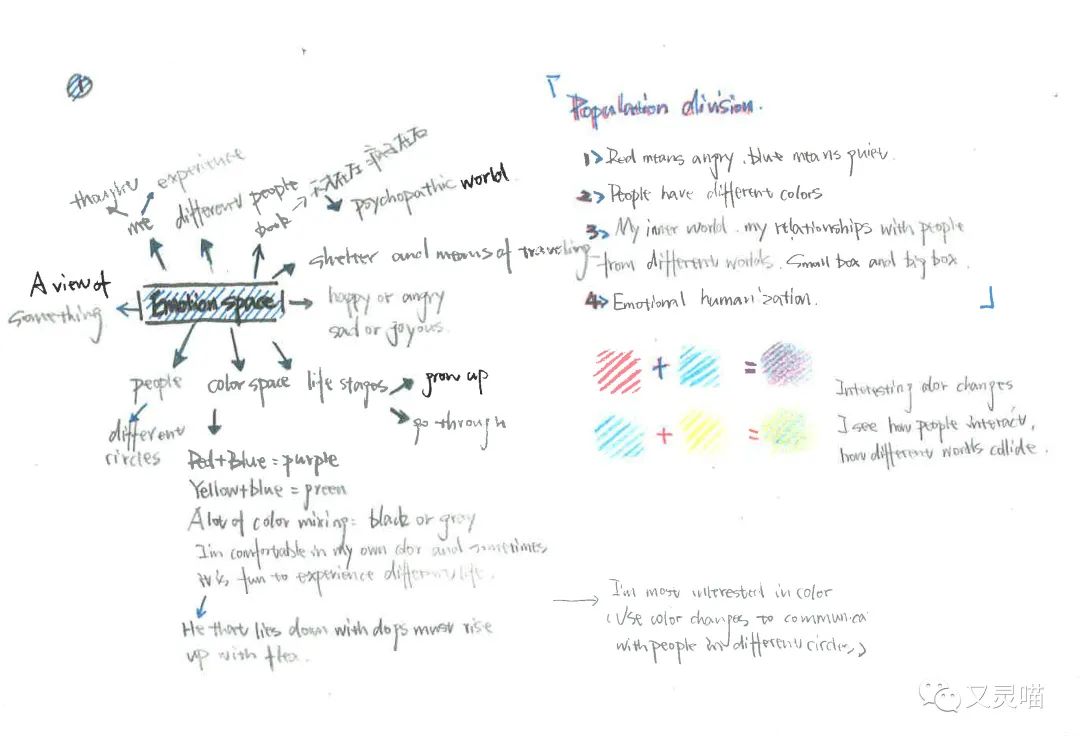 1
thought
experience
me
different people
book
psychopathic world.
shelter and means of traveling
A view of
something
Emotion space
happy or angry
sad or joyous.
people
color space
life stages
grow up
go through
different
circles
Red+Blue=purple
Yellow+blue=green
A lot of color mixing: black or gray
I'm comfortable in my own color and sometimes
it is fun to experience different life.
He that lies down with dogs must rise
up with flea.
「
Population division.
1> Red means angry. blue means quiet.
2> People have different colors
3> My inner world. my relationships with people
from different worlds. Small box and big box.
4> Emotional humanization.
」
+ =
+ =
Interesting color changes
I see how people interact,
how different worlds collide.
I'm most interested in color
(Use color changes to communica
with people in different circles)
又灵喵